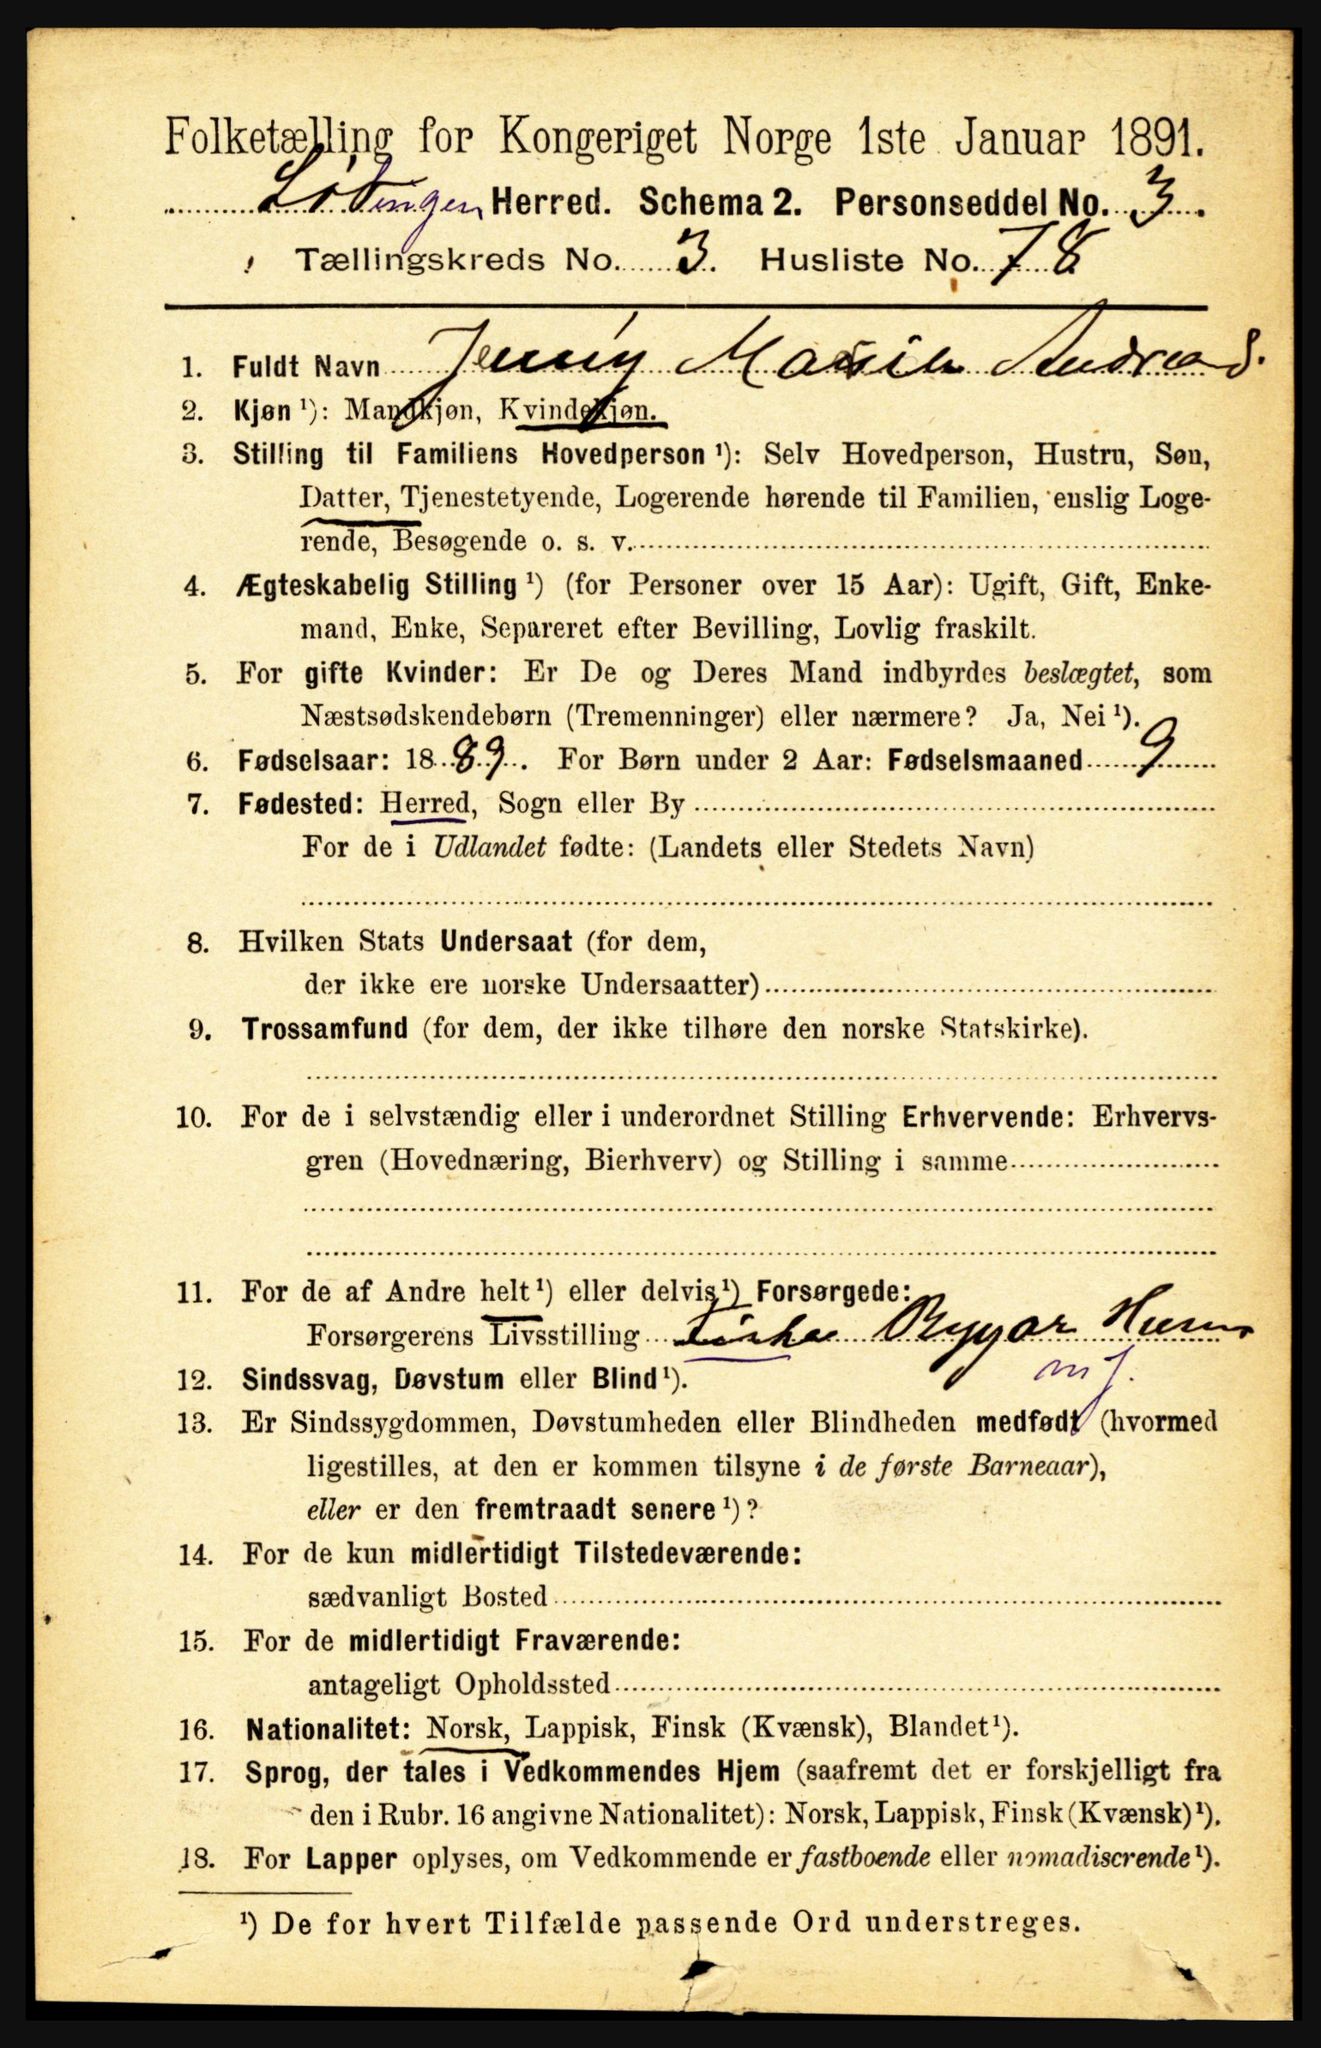 Folketælling for Kongeriget Norge 1ste Januar 1891.
Lødingen Herred. Schema 2. Personseddel No. 3.
Tællingskreds No. 3. Husliste No. 78
1. Fuldt Navn Jenny Andreas.
2. Kjøn ¹): Mandkjøn, Kvindekjøn.
3. Stilling til Familiens Hovedperson ¹): Selv Hovedperson, Hustru, Søn,
Datter, Tjenestetyende, Logerende hørende til Familien, enslig Loge-
rende, Besøgende o. s. v.
4. Ægteskabelig Stilling ¹) (for Personer over 15 Aar): Ugift, Gift, Enke-
mand, Enke, Separeret efter Bevilling, Lovlig fraskilt.
5. For gifte Kvinder: Er De og Deres Mand indbyrdes beslægtet, som
Næstsødskendebørn (Tremenninger) eller nærmere? Ja, Nei ¹).
6. Fødselsaar: 1889. For Børn under 2 Aar: Fødselsmaaned 9
7. Fødested: Herred, Sogn eller By
For de i Udlandet fødte: (Landets eller Stedets Navn)
8. Hvilken Stats Undersaat (for dem,
der ikke ere norske Undersaatter)
9. Trossamfund (for dem, der ikke tilhøre den norske Statskirke).
10. For de i selvstændig eller i underordnet Stilling Erhvervende: Erhvervs-
gren (Hovednæring, Bierhverv) og Stilling i samme
11. For de af Andre helt ¹) eller delvis ¹) Forsørgede:
Forsørgerens Livsstilling
12. Sindssvag, Døvstum eller Blind ¹).
13. Er Sindssygdommen, Døvstumheden eller Blindheden medfødt (hvormed
ligestilles, at den er kommen tilsyne i de første Barneaar),
eller er den fremtraadt senere ¹)?
14. For de kun midlertidigt Tilstedeværende:
sædvanligt Bosted
15. For de midlertidigt Fraværende:
antageligt Opholdssted
16. Nationalitet: Norsk, Lappisk, Finsk (Kvænsk), Blandet ¹).
17. Sprog, der tales i Vedkommendes Hjem (saafremt det er forskjelligt fra
den i Rubr. 16 angivne Nationalitet): Norsk, Lappisk, Finsk (Kvænsk) ¹).
18. For Lapper oplyses, om Vedkommende er fastboende eller nomadiserende ¹).
¹) De for hvert Tilfælde passende Ord understreges.